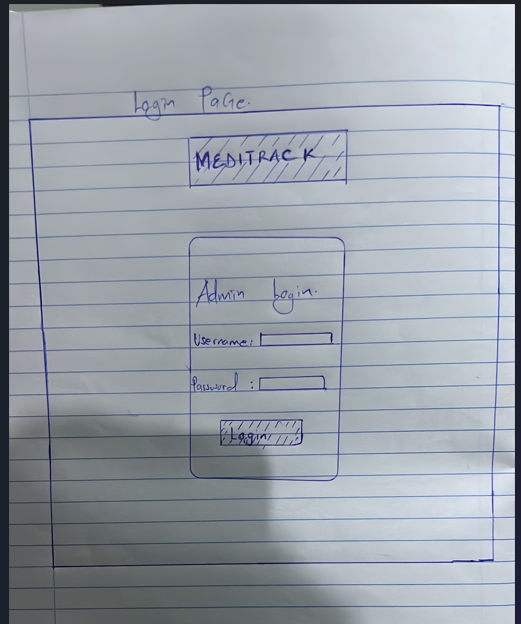 Login Page.
MEDITRACK
Admin Login.
Username:
Password :
Login